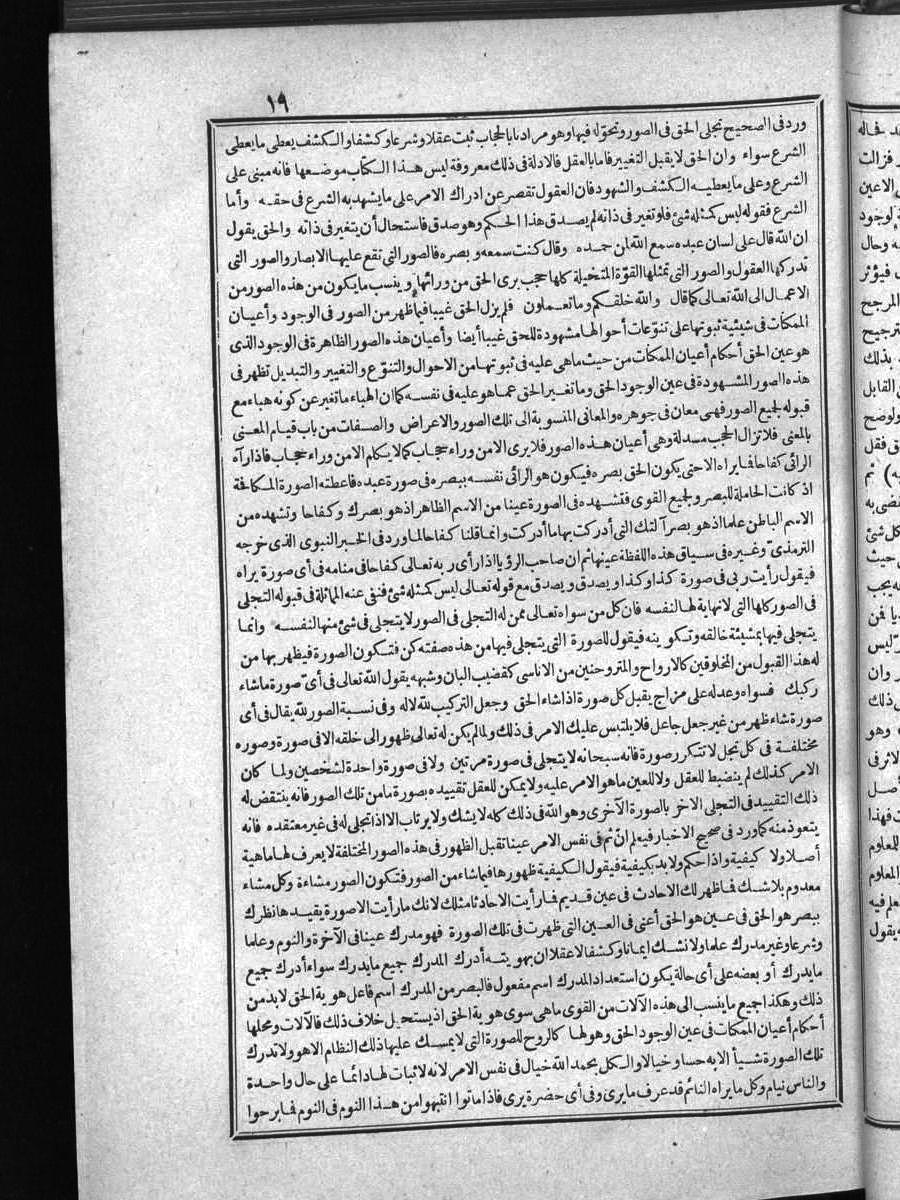 ١٩
ورد فى الصحيح تجلى الحق فى الصور وتحوّله فيها وهو مرادنا بالحجاب ثبت عقلا وشرعا وكشفا والكشف يعطى ما يعطى
الشرع سواء وان الحق لا يقبل التغيير فاما بالعقل فالادلة فى ذلك معروفة ليس هذا الكتاب موضعها فانه مبنى على
الشرع وعلى ما يعطيه الكشف والشهود فان العقول تقصر عن ادراك الامر على ما يشهد به الشرع فى حقه وأما
الشرع فقوله ليس كمثله شئ فلو تغير فى ذاته لم يصدق هذا الحكم وهو صدق فاستحال أن يتغير فى ذاته والحق يقول
ان الله قال على لسان عبده سمع الله لمن حمده وقال كنت سمعه وبصره فالصور التى تقع عليها الابصار والصور التى
تدركها العقول والصور التى تمثلها القوّة المتخيلة كلها حجب يرى الحق من ورائها وينسب ما يكون من هذه الصور من
الاعمال الى الله تعالى كما قال والله خلقكم وما تعملون فلم يزل الحق غيبا فيما ظهر من الصور فى الوجود وأعيان
الممكات فى شيئية ثبوتها على تنوّعات أحوالها مشهودة للحق غيبا أيضا وأعيان هذه الصور الظاهرة فى الوجود الذى
هو عين الحق أحكام أعيان الممكات من حيث ماهى عليه فى ثبوتها من الاحوال والتنوّع والتغيير والتبديل تظهر فى
هذه الصور المشهودة فى عين الوجود الحق وما تغير الحق عما هو عليه فى نفسه كما ان الهباء ما تغير عن كونه هباء مع
قبوله لجيع الصور فهى معان فى جوهره والمعانى المنسوبة الى تلك الصور والاعراض والصفات من باب قيام المعنى
بالمعنى فلا تزال الحجب مسدلة وهى أعيان هذه الصور فلا يرى الا من وراء حجاب كما لا يكلم الا من وراء حجاب فاذا رآه
الرائى كفاحا فما يراه الا حتى يكون الحق بصره فيكون هو الرائى نفسه ببصره فى صورة عبده فاعطته الصورة المكافحة
اذ كانت الحاملة للبصر ولجيع القوى فتشهده فى الصورة عينا من الاسم الظاهر اذ هو بصرك وكفاحا وتشهده من
الاسم الباطن علما اذ هو بصر آلتك التى أدركت بها ما أدركت وانما قلنا كفاحا لما ورد فى الخبر النبوى الذى خرجه
الترمذى وغيره فى سياق هذه اللفظة عينها ثم ان صاحب الرؤيا اذا رأى ربه تعالى كفاحا فى منامه فى أى صورة يراه
فيقول رأيت ربى فى صورة كذا وكذا ويصدق ويصدق مع قوله تعالى ليس كمثله شئ فنفى عنه المماثلة فى قبوله التجلى
فى الصور كلها التى لا نهاية لها لنفسه فان كل من سواه تعالى ممن له التجلى فى الصور لا يتجلى فى شئ منها لنفسه وانما
يتجلى فيها بمشيئة خالقه وتكوينه فيقول للصورة التى يتجلى فيها من هذه صفته كن فتكون الصورة فيظهر بها من
له هذا القبول من المخلوقين كالارواح والمتروحنين من الاناسى كقضيب البان وشبهه يقول الله تعالى فى أىّ صورة ما شاء
ركبك فسواه وعدله على مزاج يقبل كل صورة اذا شاء الحق وجعل التركيب لله لا له وفى نسبة الصور لله يقال فى أى
صورة شاء ظهر من غير جعل جاعل فلا يلتبس عليك الامر فى ذلك ولما لم يكن له تعالى ظهور الى خلقه الا فى صورة وصوره
مختلفة فى كل تجل لا تتكرر صورة فانه سبحانه لا يتجلى فى صورة مرتين ولا فى صورة واحدة لشخصين ولما كان
الامر كذلك لم ينضبط للعقل ولا للعين ما هو الامر عليه ولا يمكن للعقل تقييده بصورة ما من تلك الصور فانه ينتقض له
ذلك التقييد فى التجلى الآخر بالصورة الآخرى وهو الله فى ذلك كله لا يشك ولا يرتاب الا اذا تجلى له فى غير معتقده فانه
يتعوذ منه كما ورد فى صحيح الاخبار فيعلم انّ ثم فى نفس الامر عينا تقبل الظهور فى هذه الصور المختلفة لا يعرف لها ماهية
أصلا ولا كيفية واذا حكم ولا بد بكيفية فيقول الكيفية ظهورها فيما شاء من الصور فتكون الصور مشاءة وكل مشاء
معدوم بلا شك فما ظهر لك الا حادث فى عين قديم فما رأيت الا حادثا مثلك لانك ما رأيت الا صورة يقيدها نظرك
ببصر هو الحق فى عين هو الحق أعنى فى العين التى ظهرت فى تلك الصورة فهو مدرك عينا فى الآخرة والنوم وعلما
وشرعا وغير مدرك علما ولا نشك ايمانا وكشفا لا عقلا ان بهويته أدرك المدرك جميع ما يدرك سواء أدرك جميع
ما يدرك أو بعضه على أى حالة يكون استعداد المدرك اسم مفعول فالبصر من المدرك اسم فاعل هوية الحق لا بد من
ذلك وهكذا جميع ما ينسب الى هذه الآلات من القوى ماهى سوى هوية الحق اذ يستحيل خلاف ذلك فالآلات ومحلها
أحكام أعيان الممكات فى عين الوجود الحق وهو لها كالروح للصورة التى لا يمسك عليها ذلك النظام الا هو ولا تدرك
تلك الصورة شيأ الا به حسا وخيالا والكل بحمد الله خيال فى نفس الامر لانه لا ثبات لها دائما على حال واحدة
والناس نيام وكل ما يراه النائم قد عرف ما يرى وفى أى حضرة يرى فاذا ماتوا انتبهوا من هذا النوم فى النوم فما برحوا